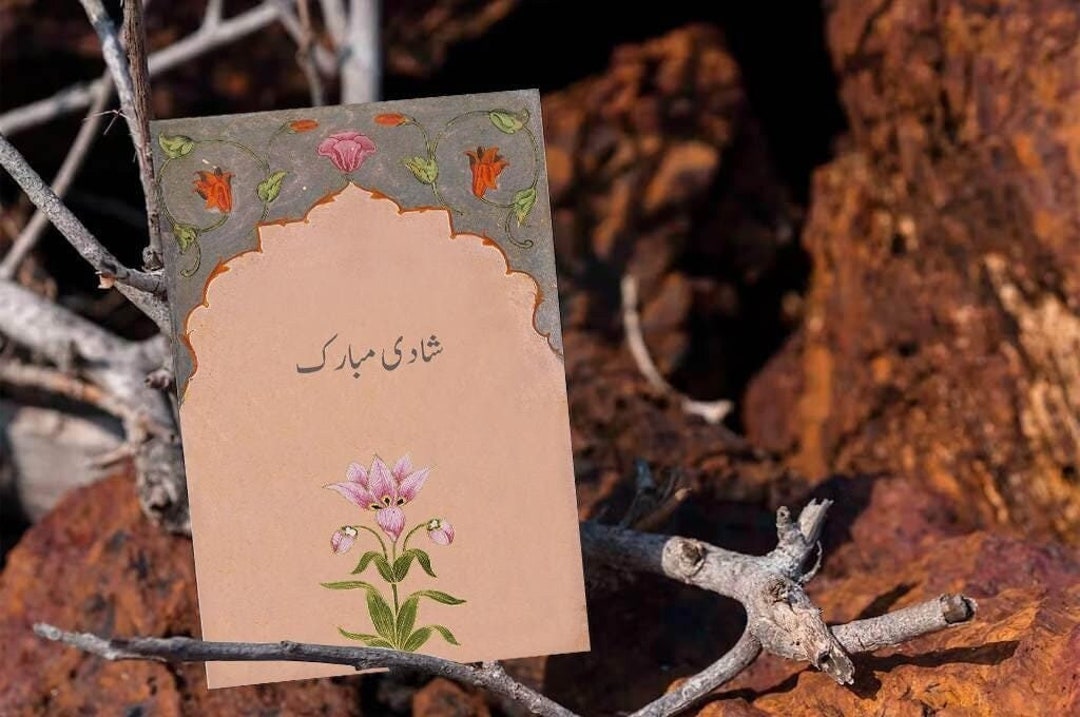 شادی مبارک